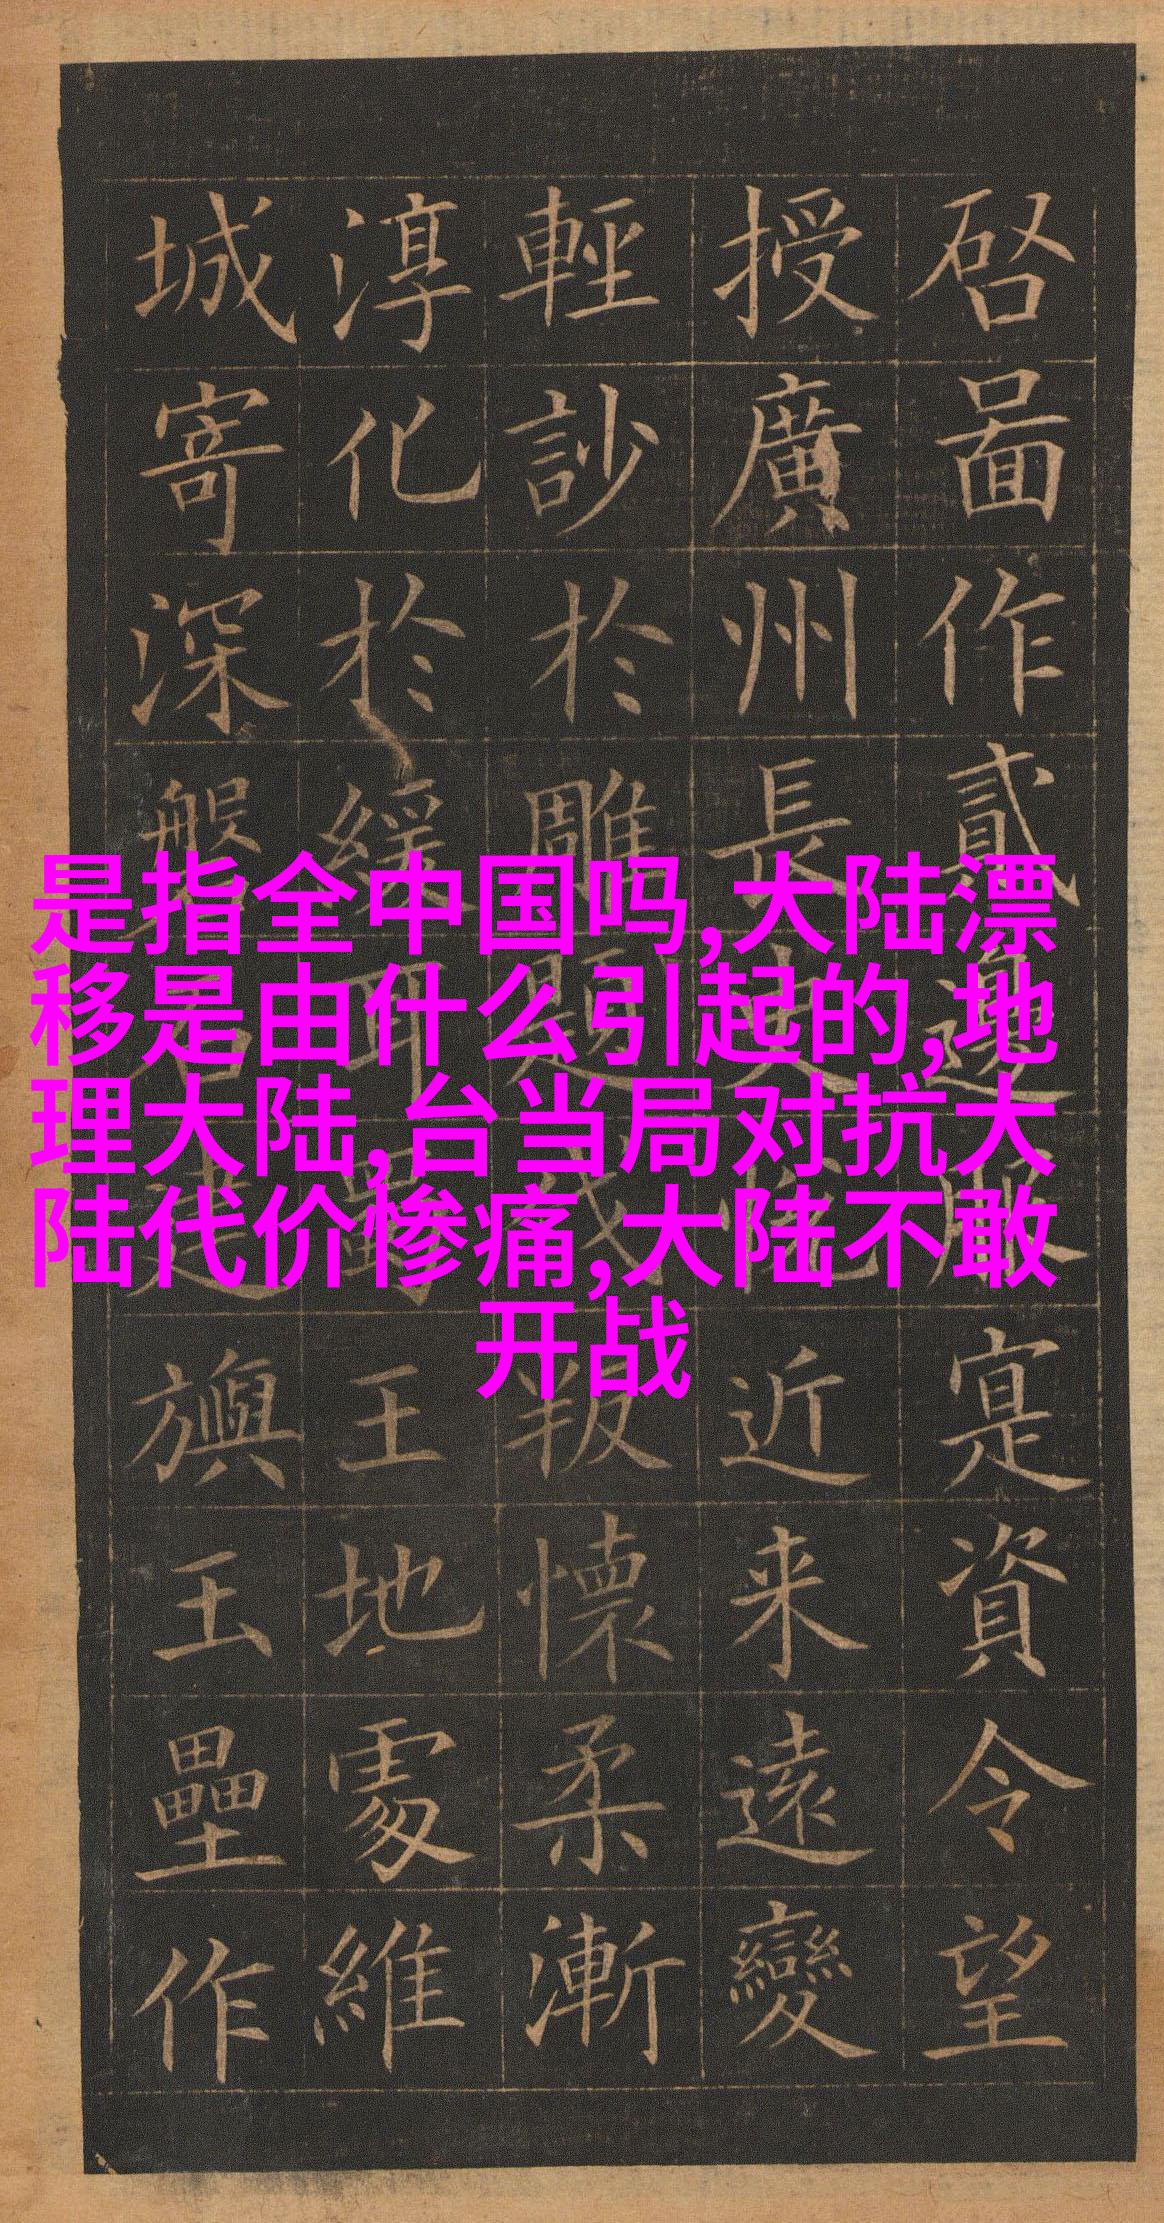 启啚作貳邊服寔資令望
授廣州長史悅近来遠變
輕訬於雕題成叛懷柔漸
淳化於緩耳王地處維
城寄深般石建旟玉壘作
是指全中国吗,大陆漂
移是由什么引起的,地
理大陆,台当局对抗大
陆代价惨痛,大陆不敢
开战